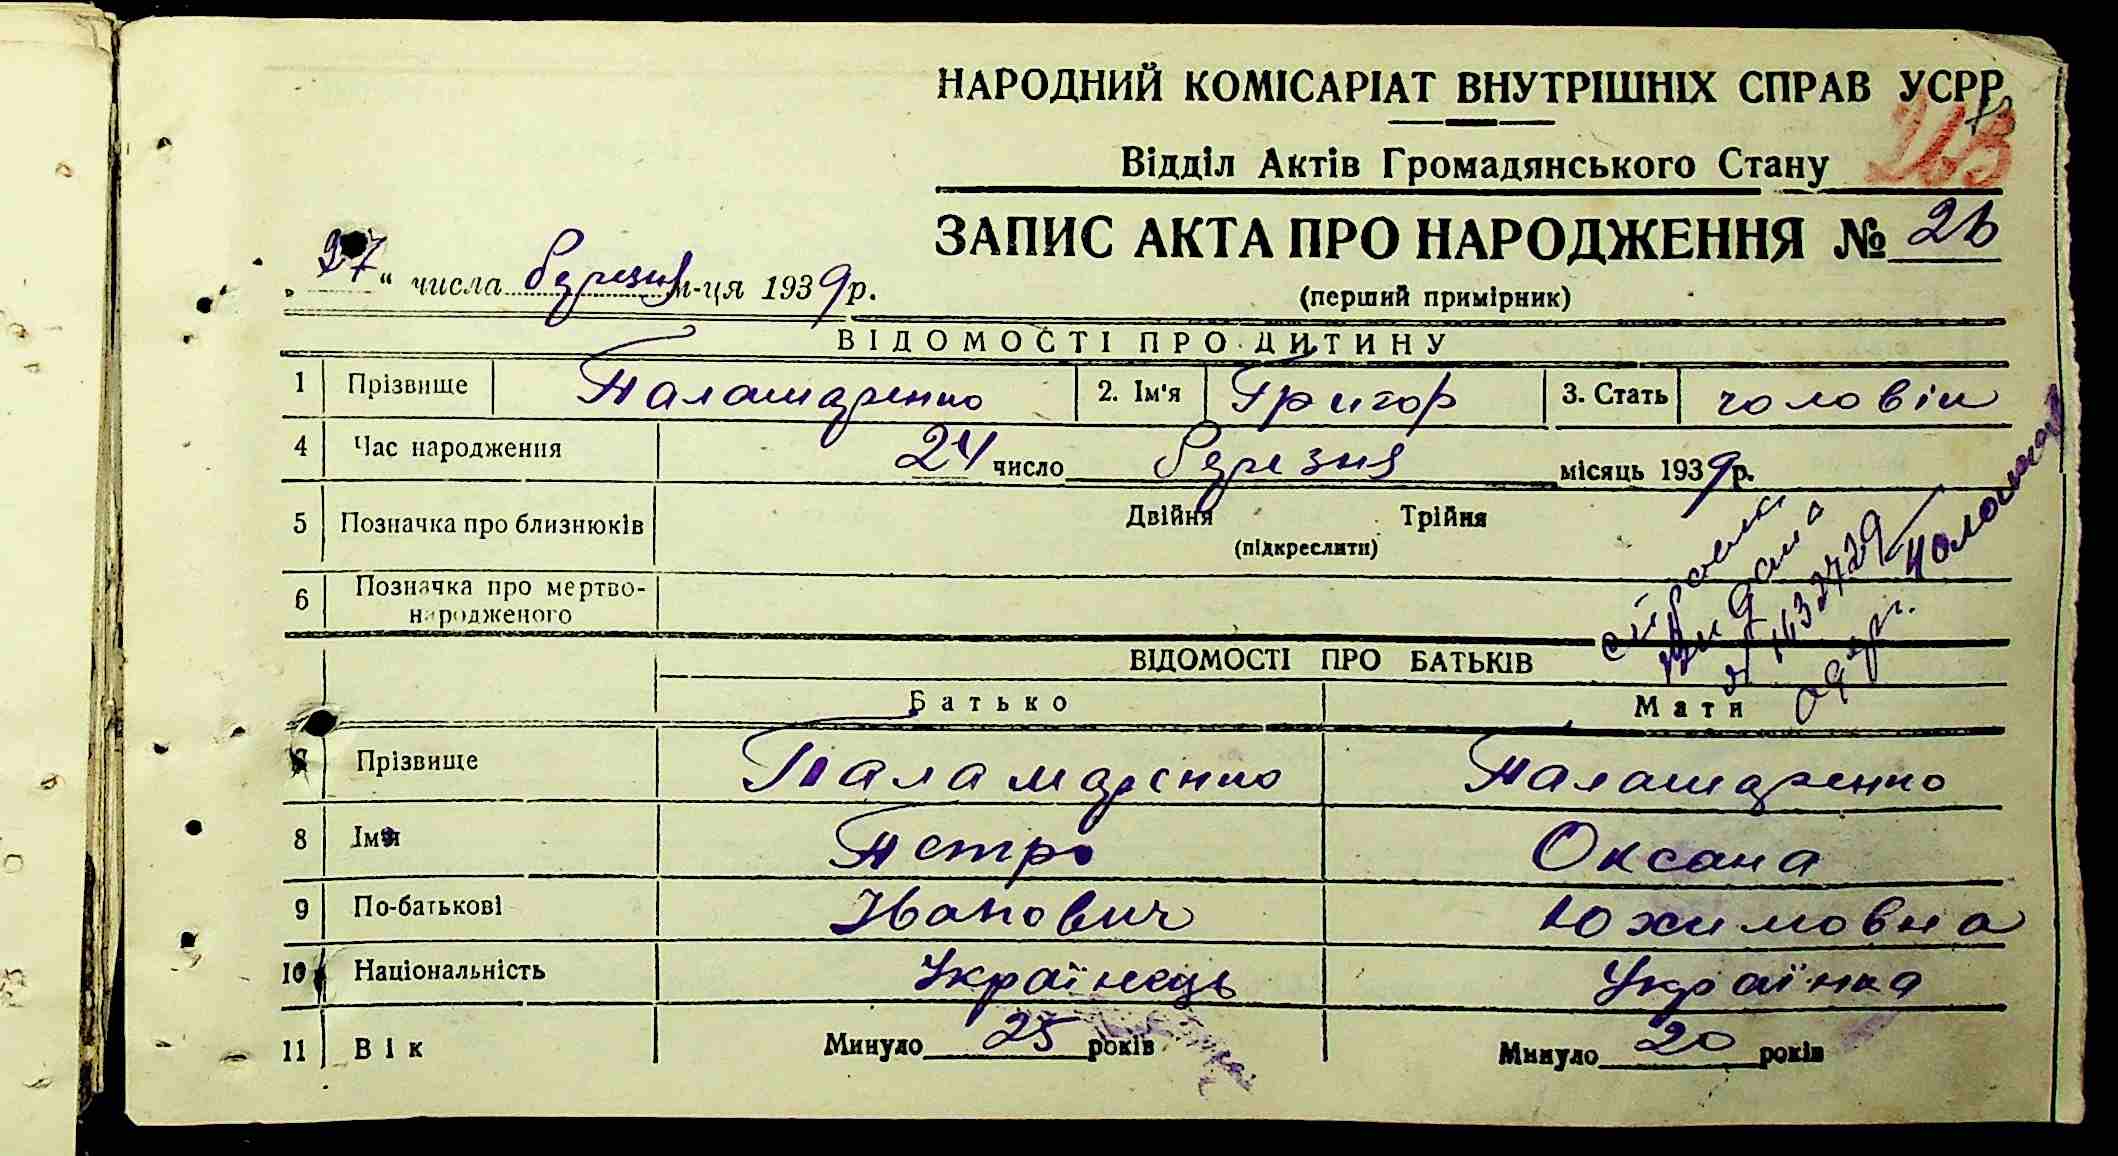 НАРОДНИЙ КОМІСАРІАТ ВНУТРІШНІХ СПРАВ УСРР
Відділ Актів Громадянського Стану
ЗАПИС АКТА ПРО НАРОДЖЕННЯ № 26
(перший примірник)
„27“ числа березня м-ця 1939 р.
ВІДОМОСТІ ПРО ДИТИНУ
1 Прізвище Паламаренко 2. Ім'я Григор 3. Стать чоловіч
4 Час народження 24 число березня місяць 1939 р.
5 Позначка про близнюків Двійня Трійня
(підкреслити)
6 Позначка про мертво-
народженого
ВІДОМОСТІ ПРО БАТЬКІВ
Батько Мати
7 Прізвище Паламаренко Паламаренко
8 Ім'я Петро Оксана
9 По-батькові Іванович Юхимовна
10 Національність Українець Українка
11 Вік Минуло 25 років Минуло 20 років